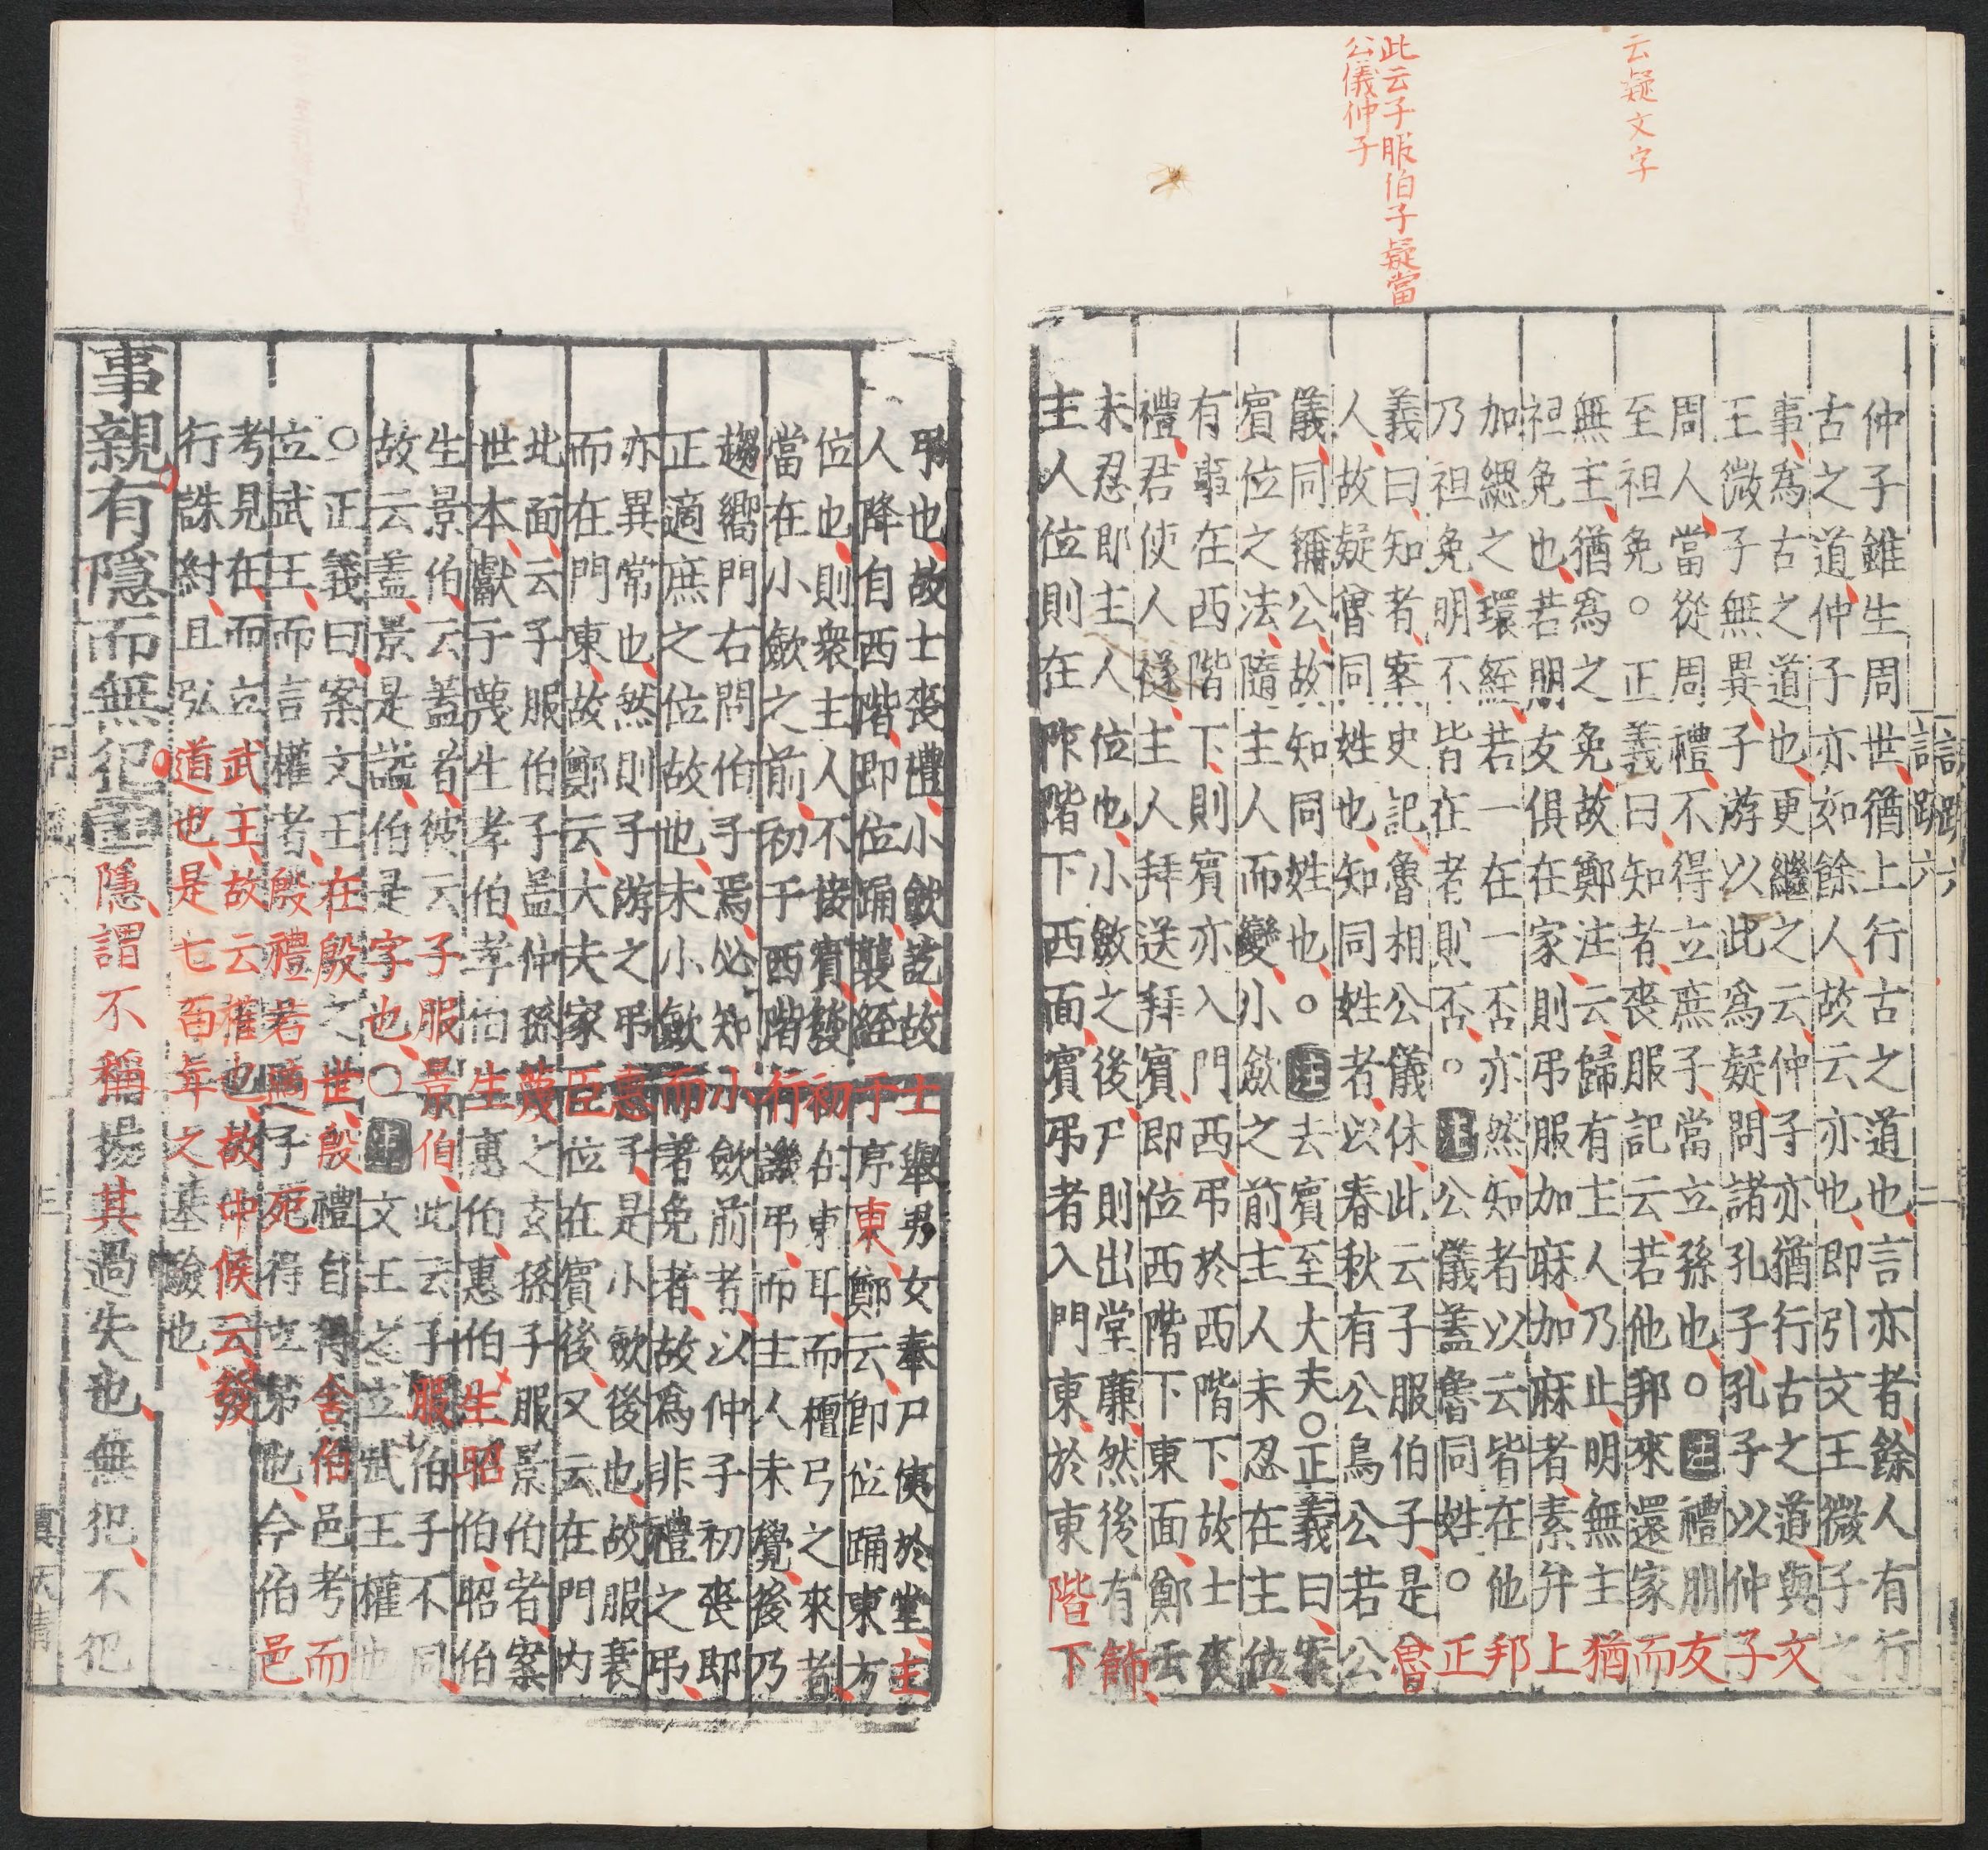 云疑文字
此云子服伯子疑當
公儀仲子
仲子雖生周世猶上行古之道也言亦者餘人有行
古之道仲子亦如餘人故云亦也即引文王微子之
事為古之道也更繼之云仲子亦猶行古之道與文
王微子無異子游以此為疑問諸孔子孔子以仲子
周人當從周禮不得立庶子當立孫也○注禮朋友
至袒免○正義曰知者喪服記云若他邦來還家而
無主猶為之免故鄭注云歸有主人乃止明無主猶
袒免也若朋友俱在家則弔服加麻加麻者素弁上
加緦之環絰若一在一否亦然知者以云皆在他邦
乃袒免明不皆在者則否○注公儀蓋魯同姓○正
義曰知者案史記魯相公儀休此云子服伯子是魯
人故疑魯同姓也知同姓者以春秋有公鳥公若公
儀同稱公故知同姓也○注去賓至大夫○正義曰案
賓位之法隨主人而變小斂之前主人未忍在主位
有事在西階下則賓亦入門西弔於西階下故士喪
禮君使人襚主人拜送拜賓即位西階下東面鄭云
未忍即主人位也小斂之後尸則出堂廉然後有飾
主人位則在阼階下西面賓弔者入門東於東階下
弔也故士喪禮小斂訖故士舉男女奉尸侇於堂主
人降自西階即位踊襲絰于序東鄭云即位踊東方
位也則衆主人不接賓發初在東耳而檀弓之來者
當在小斂之前初于西階行譏弔而主人未覺後乃
趨嚮門右問伯子焉必知小斂前者以仲子初喪即
正適庶之位故也未小斂而著免者故為非禮之弔
亦異常也然則子游之弔惠子是小斂後也故服衰
而在門東故鄭云大夫家臣位在賓後又云在門內
北面云子服伯子盖仲孫蔑之玄孫子服景伯者案
世本獻子蔑生孝伯孝伯生惠伯惠伯生昭伯昭伯
生景伯云蓋者彼云子服景伯此云子服伯子不同
故云盖景是諡伯是字也○注文王之立武王權也
○正義曰案文王在殷之世殷禮自得舍伯邑考而
立武王而言權者殷禮若適子死得立弟也今伯邑
考見在而立武王故云權也故中候云發
行誅紂且弘道也是七百年之基驗也
事親有隱而無犯注隱謂不稱揚其過失也無犯不犯